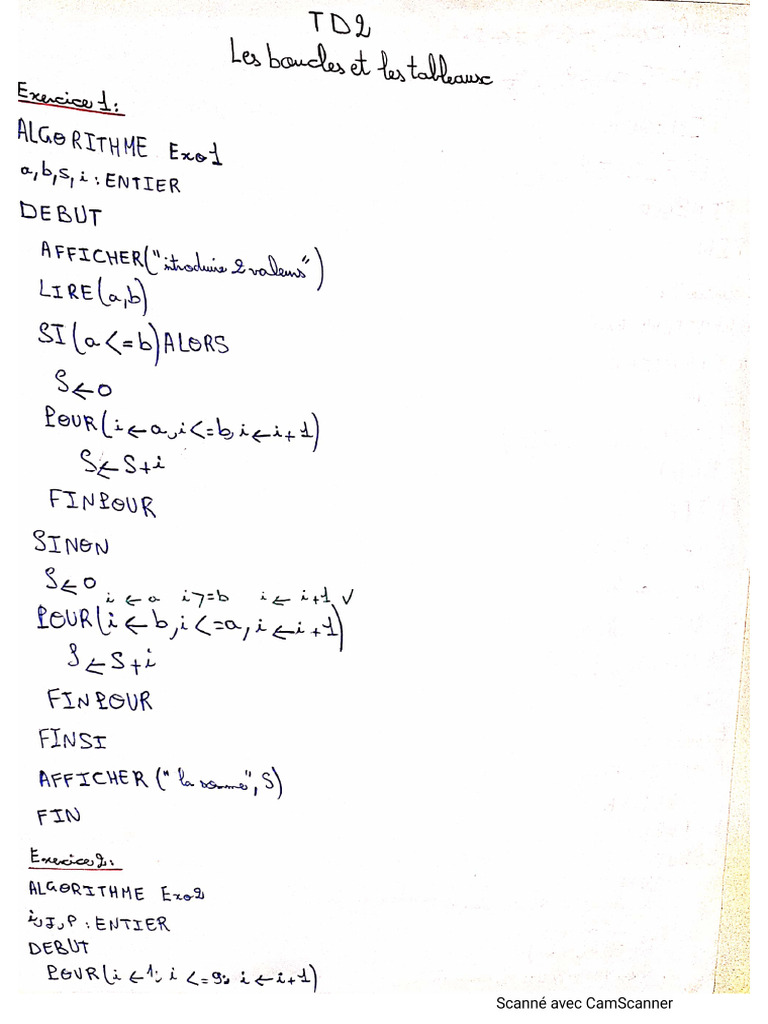 TD2
Les boucles et les tableaux
Exercice 1:
ALGORITHME Exo1
a,b,s,i : ENTIER
DEBUT
AFFICHER("introduire 2 valeurs")
LIRE(a,b)
SI(a<=b)ALORS
S←0
POUR(i←a,i<=b,i←i+1)
S←S+i
FINPOUR
SINON
S←0
i ← a i>=b i ← i+1 ✓
POUR(i←b,i<=a,i←i+1)
S←S+i
FINPOUR
FINSI
AFFICHER("la somme",S)
FIN
Exercice 2:
ALGORITHME Exo2
i,J,P : ENTIER
DEBUT
POUR(i←1; i<=9; i←i+1)
Scanné avec CamScanner